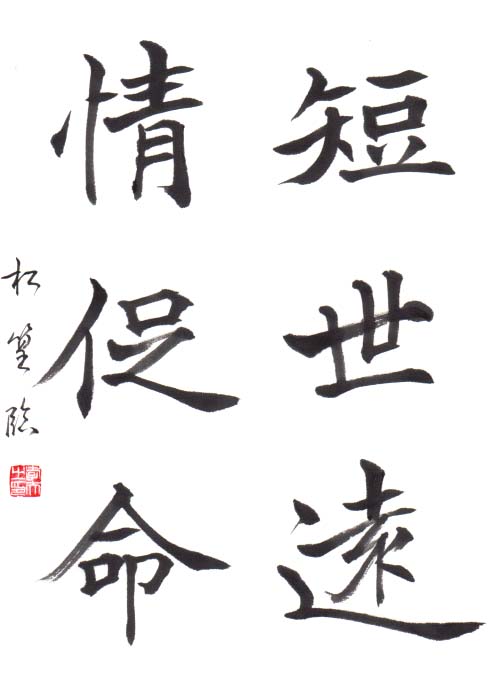 短世遠
情促命
松篁臨